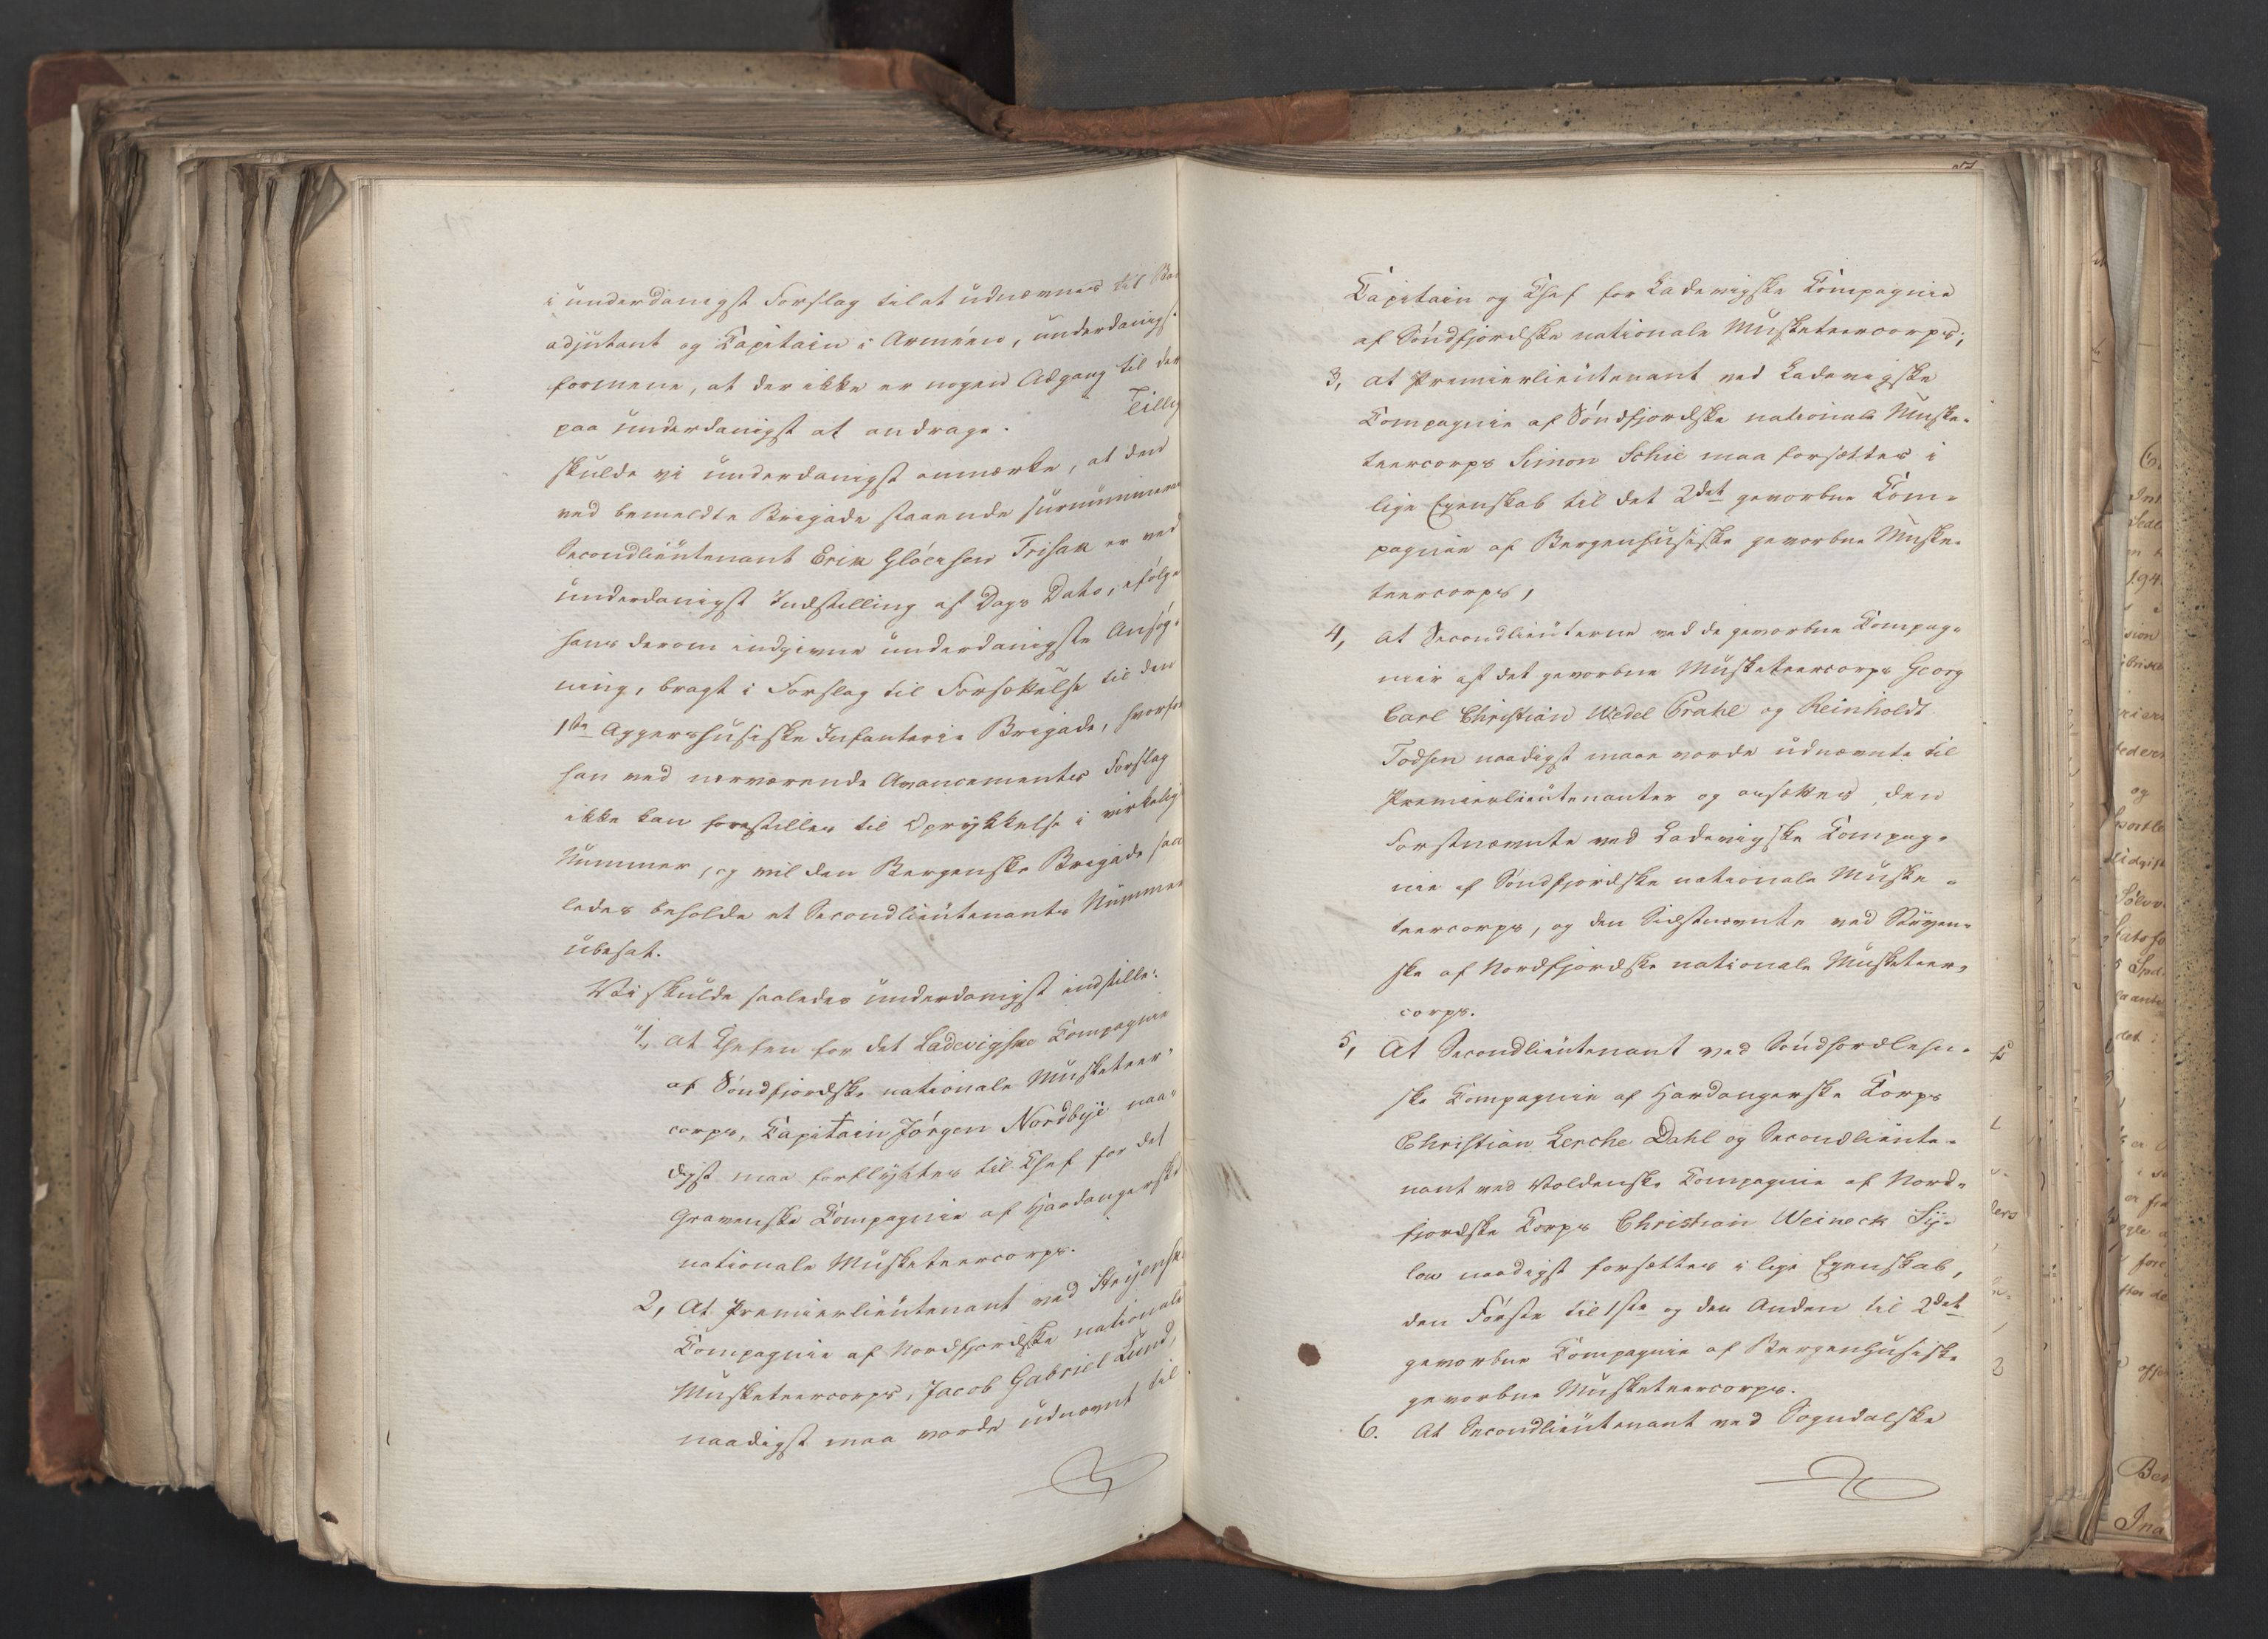 i underdanigst Forslag til at udnævnes til
adjutant og Capitain i Arméen, underdanigst
formene, at der ikke er nogen Adgang til der
paa underdanigst at andrage. Tillig
skulde vi underdanigst anmærke, at den
ved bemeldte Brigade staaende surnummeraire
Secondlieutenant Erik Glöersen Frisak er ved
underdanigst Indstilling af Dags Dato, ifølge
hans derom indgivne underdanigste Ansøg-
ning, bragt i Forslag til Forsættelse til den
1ste Aggershusiske Infanterie Brigade, hvorfor
han ved nærværende Avancements Forslag
ikke kan forestilles til Oprykkelse i virkelig
Nummer, og vil den Bergenske Brigade saa
ledes beholde et Secondlieutenants Nummer
ubesat.
Vi skulde saaledes underdanigst indstille:
"1, at Chefen for det Ladevigske Compagnie
af Søndfjordske nationale Musketeer-
corps, Capitain Jørgen Nordbye naa-
digst maa forflyttes til Chef for det
Gravenske Compagnie af Hardangerske
nationale Musketeercorps.
2, At Premierlieutenant ved Stryenske
Compagnie af Nordfjordske nationale
Musketeercorps, Jacob Gabriel Lund,
naadigst maa vorde udnævnt til
Capitain og Chef for Ladevigske Compagnie
af Søndfjordske nationale Musketeercorps;
3, at Premierlieutenant ved Ladevigske
Compagnie af Søndfjordske nationale Muske-
teercorps Simon Schie maa forsættes i
lige Egenskab til det 2det gevorbne Com-
pagnie af Bergenhusiske gevorbne Muske-
teercorps,
4, at Secondlieuterne ved de gevorbne Compag-
nier af det gevorbne Musketeercorps Georg
Carl Christian Wedel Prahl og Reinholdt
Todsen naadigst maae vorde udnævnte til
Premierlieutenanter og ansættes, den
Førstnævnte ved Ladevigske Compag-
nie af Søndfjordske nationale Muske-
teercorps, og den Sidstnævnte ved Stryen-
ske af Nordfjordske nationale Musketeer-
corps.
5, At Secondlieutenant ved Søndhordlehn-
ske Compagnie af Hardangerske Corps
Christian Lerche Dahl og Secondlieute-
nant ved Voldenske Compagnie af Nord-
fjordske Corps Christian Weineck Sy-
low naadigst forsættes i lige Egenskab,
den Første til 1ste og den Anden til 2det
gevorbne Compagnie af Bergenhusiske
gevorbne Musketeercorps.
6. At Secondlieutenant ved Sogndalske